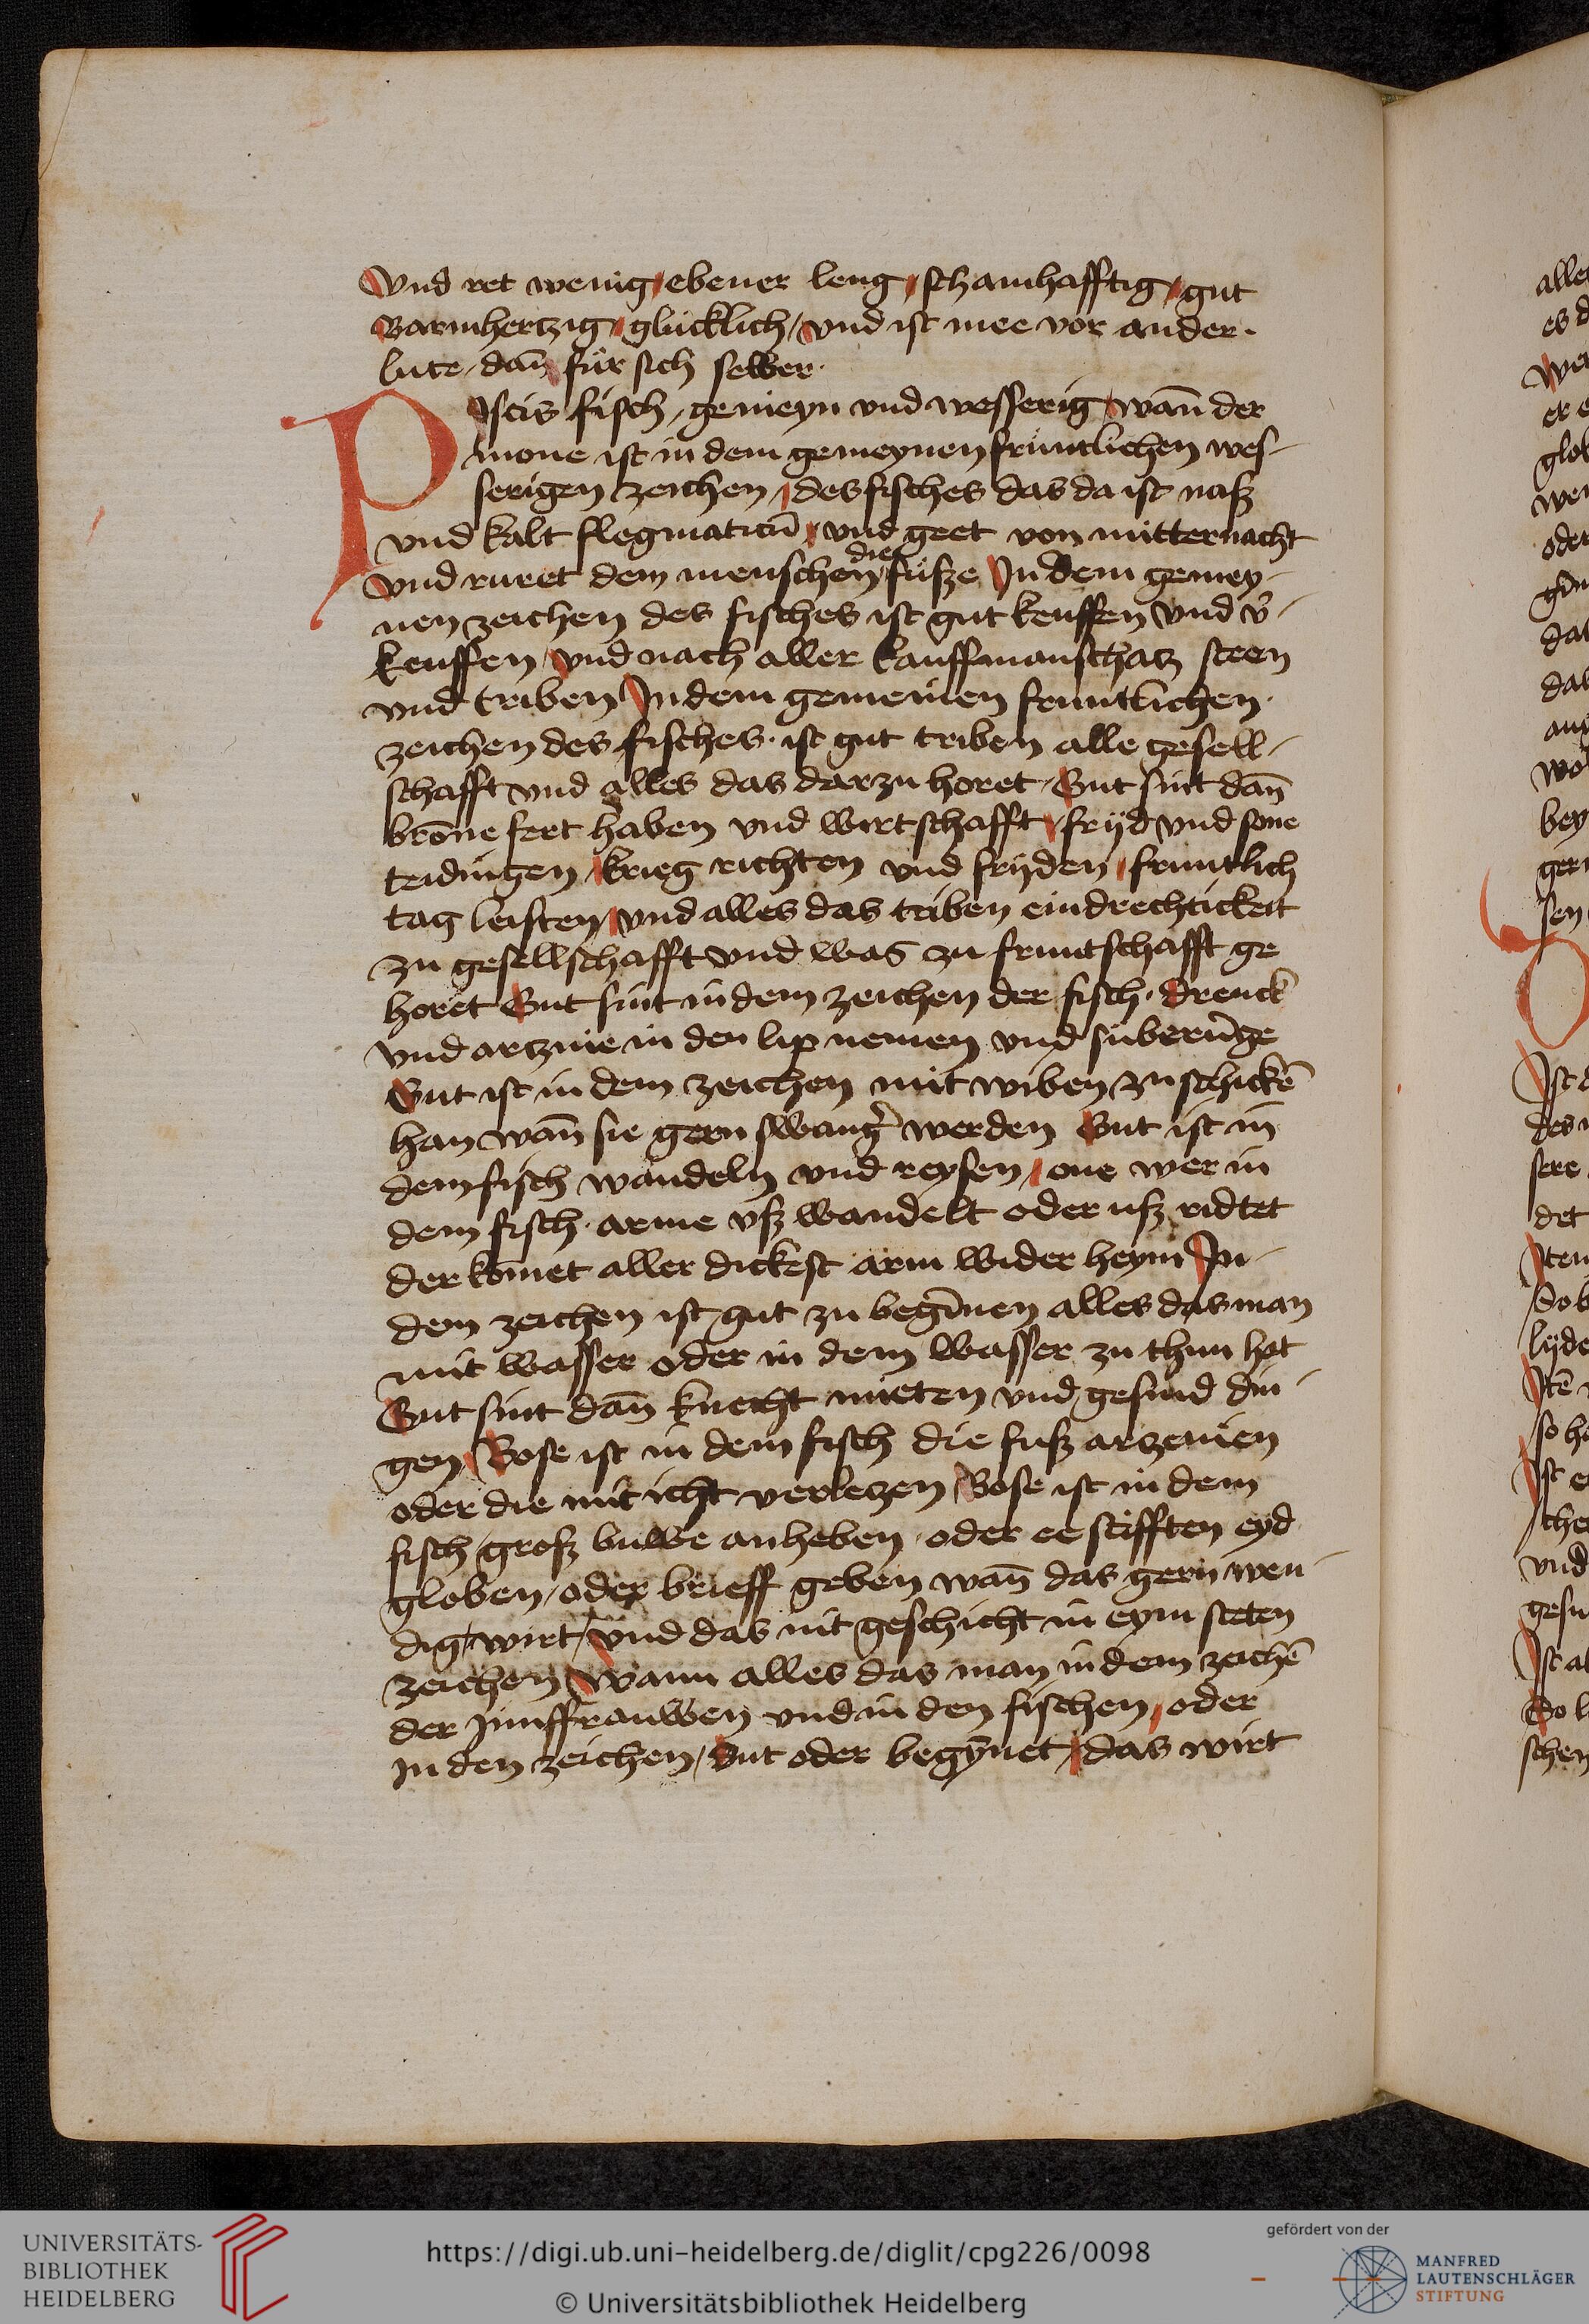 Vnd ret wenig / ebener leng / schamhafftig / gut
Barmhertzig / glücklich / vnd ist mee vor ander
lute / dan̄ für sich selber·
Piscis fisch / gemeyn vnd wesserig / wan̄ der
mone ist in dem gemeynen früntlichen wes-
serigen zeichen / des fisches das da ist nasz
vnd kalt flegmaticū / vnd geet von mitternacht
vnd ruret dem menschen die füsze In dem gemey-
nen zeichen des fisches ist gut keuffen vnd v̾-
keuffen / vnd nach aller kauffmanschatz steen
vnd triben In dem gemeinen fruntlichen
zeichen des fisches · ist gut triben alle gesell-
schafft vnd alles das darzu horet / Gut sint dan̄
brōne fert haben vnd wirtschafft / frijd vnd sone
teidingen / krieg richten vnd frijden / fruntlich
tag leisten / vnd alles das triben eindrechtickeit
zu gesellschafft vnd was zu fruntschafft ge
horet Gut sint in dem zeichen der fisch · drenck
vnd artznie in den lip nemen vnd suberūge
Gut ist in dem zeichen mit wiben zu schickē
han wan̄ sie gern swang̾ werden Gut ist in
dem fisch wandeln vnd reysen / one wer in
dem fisch · arme vsz wandelt oder usz ridtet
der kōmet aller dickest arm wider heym In-
dem zeichen ist gut zu begīnen alles das man
mit wasser oder in dem wasser zu thun hot
Gut sint dan̄ knecht mieten vnd gesind din-
gen / Bose ist in dem fisch die fusz artzenien
oder die mit icht verletzen / Bose ist in dem
fisch / grosz buwe anheben / oder ee stifften eyd
globen / oder brieff geben wan̄ das gern wen-
dig wirt / vnd das nit geschicht in eym steten
zeichen / Wann alles das man in dem zeichē
der Junffrauwen vnd in den fischen / oder
In den zeichen / dut oder begȳnet / das wirt
UNIVERSITÄTS-
BIBLIOTHEK
HEIDELBERG
https://digi.ub.uni-heidelberg.de/diglit/cpg226/0098
© Universitätsbibliothek Heidelberg
gefördert von der
MANFRED
LAUTENSCHLÄGER
STIFTUNG